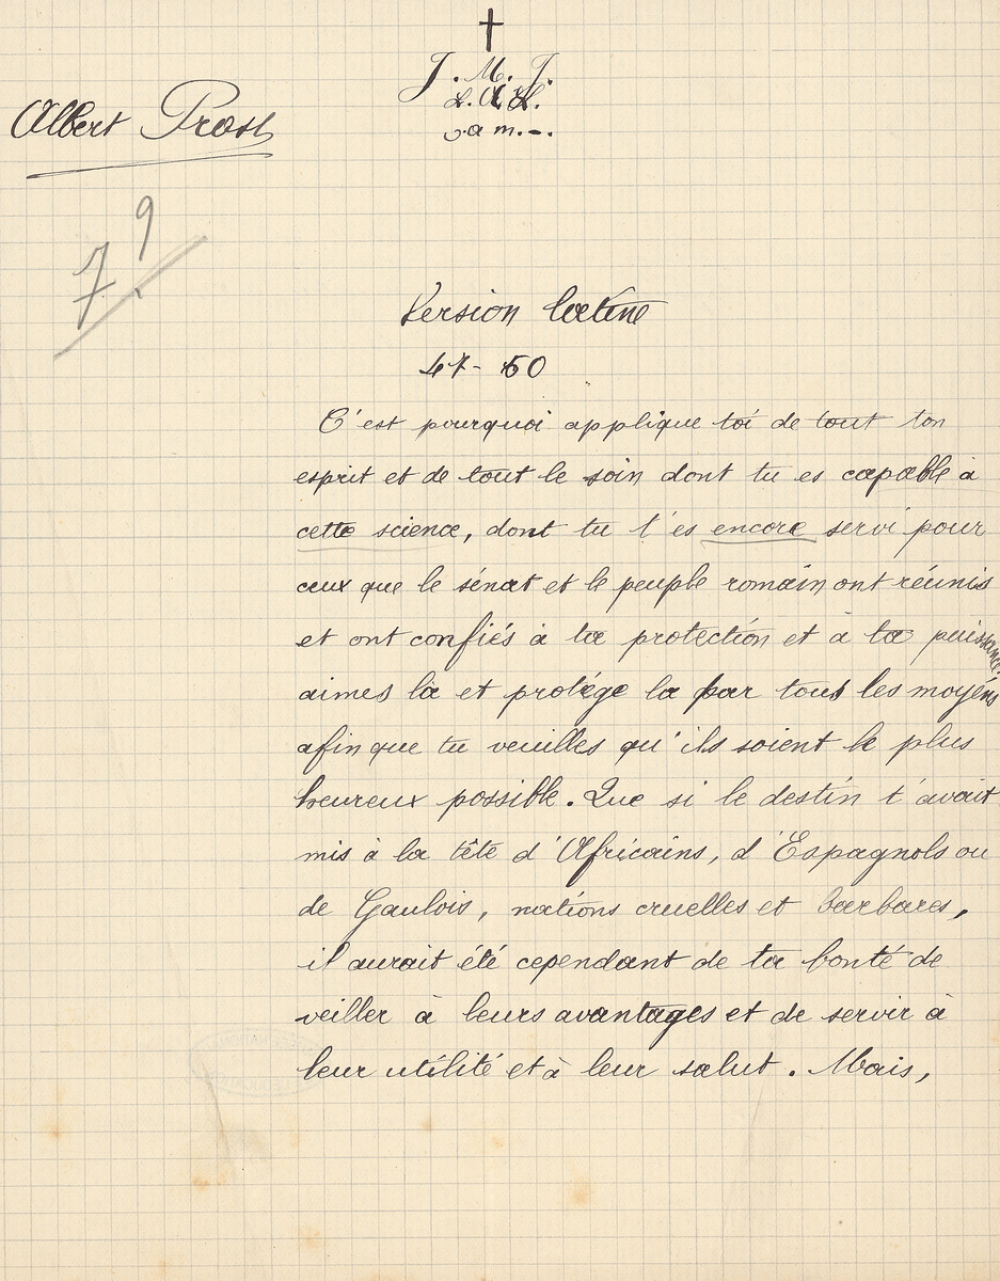 †
J. M. J.
Albert Prost
9
7
Version latine
47-50
C'est pourquoi applique toi de tout ton
esprit et de tout le soin dont tu es capable à
cette science, dont tu t'es encore servi pour
ceux que le sénat et le peuple romain ont réunis
et ont confiés à ta protection et à ta puissance:
aimes la et protége la par tous les moyens
afin que tu veuilles qu'ils soient le plus
heureux possible. Que si le destin t'avait
mis à la tête d'Africains, d'Espagnols ou
de Gaulois, nations cruelles et barbares,
il aurait été cependant de ta bonté de
veiller à leurs avantages et de servir à
leur utilité et à leur salut. Mais,